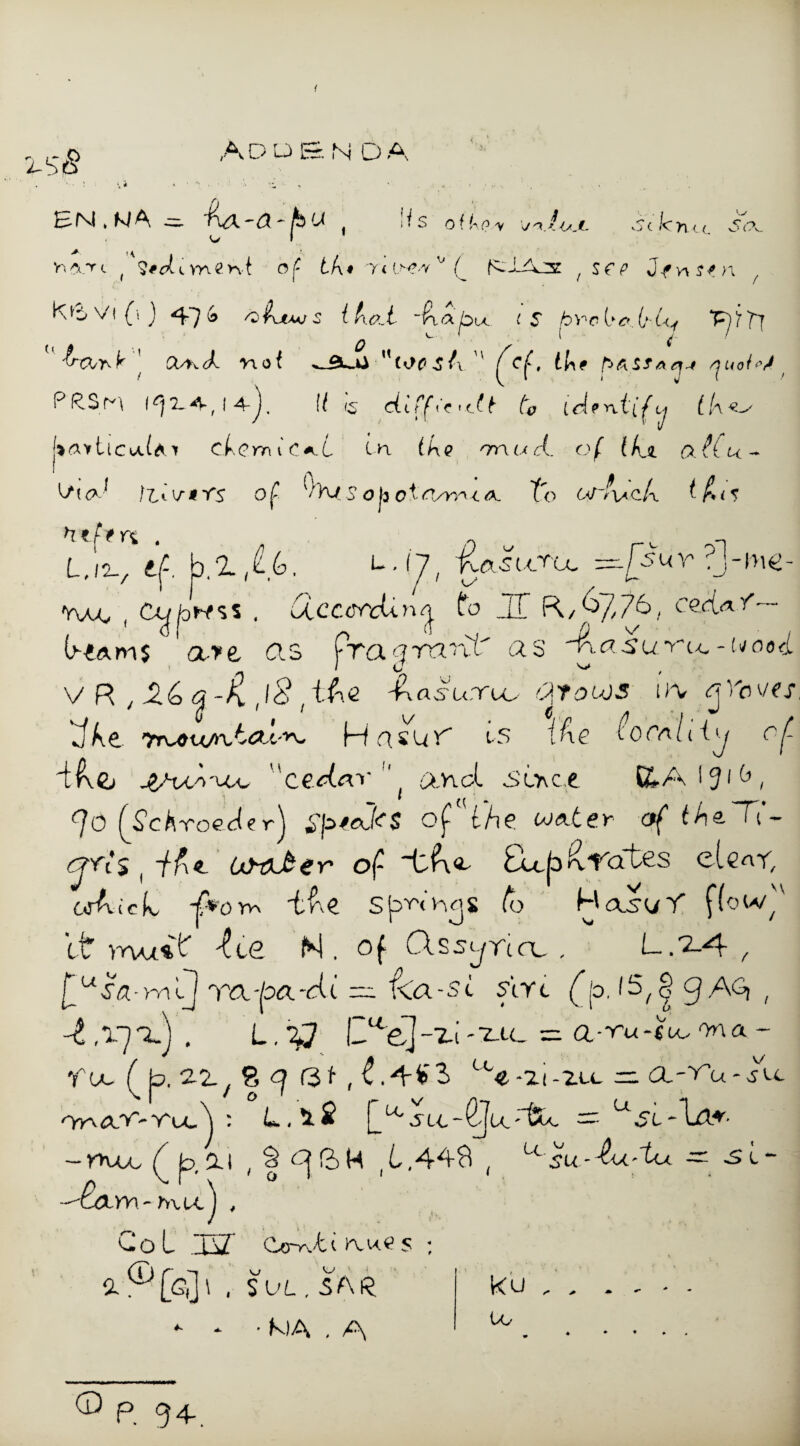 258
ADDENDA
EN.NA = ḫa-a-pu, its other value siknu ša
nāri, "sediment of the river" ( , see Jensen,
KB VI (i) 476 shews that ḫāpu is probably
"bank", and not "wosh" (cf. the passage quoted
PRSM 1924, 14). It is difficult to identify the
particular chemical in the mud of the allu-
vial rivers of Mesopotamia to which this
refers.
L.12, cf. p.2, l.6. L.17, ḫašuru =[šur ?]-me-
nu, cypress. According to II R, 67,76, cedar-
beams are as fragrant as ḫašuru-wood
VR, 26 g-h, 18, the ḫašuru grows in groves.
The mountain Ḫašur is the locality of
the erinu "cedar", and since ZA 1916,
90 (Schroeder) speaks of "the water of the Ti-
gris, the water of the Euphrates clear,
which from the springs to Ḫašur flow",
it must lie N. of Assyria. L.24,
[ᵘša-mi] ra-pa-di = ka-si siri (p.15, § 9 AG,
l.172). L.27 [ᵘe]-zi-zu = a-ru-šu ma-
ru (p.22, § 9 Bf, l.483 ᵘe-zi-zu = a-ru-šu
mar-ru): L.28 [ᵘšu-l]u-tu = ᵘsi-lam-
-mu (p.21, § 9 BH, l.448, ᵘšu-lu-tu = si-
-lam-mu).
Col IV continues:
2.①[G]I. ŠUL. ŠAR | KU . . . . . .
. . . NA . A | ᵘ . . . . . .
① P. 94.